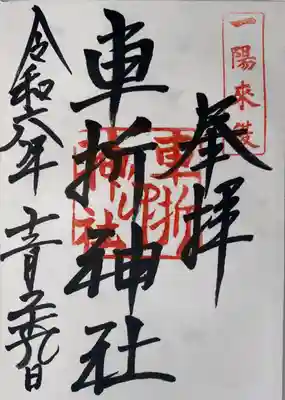 一陽來復
奉拝
車折神社
車折神社
令和六年十二月二十九日